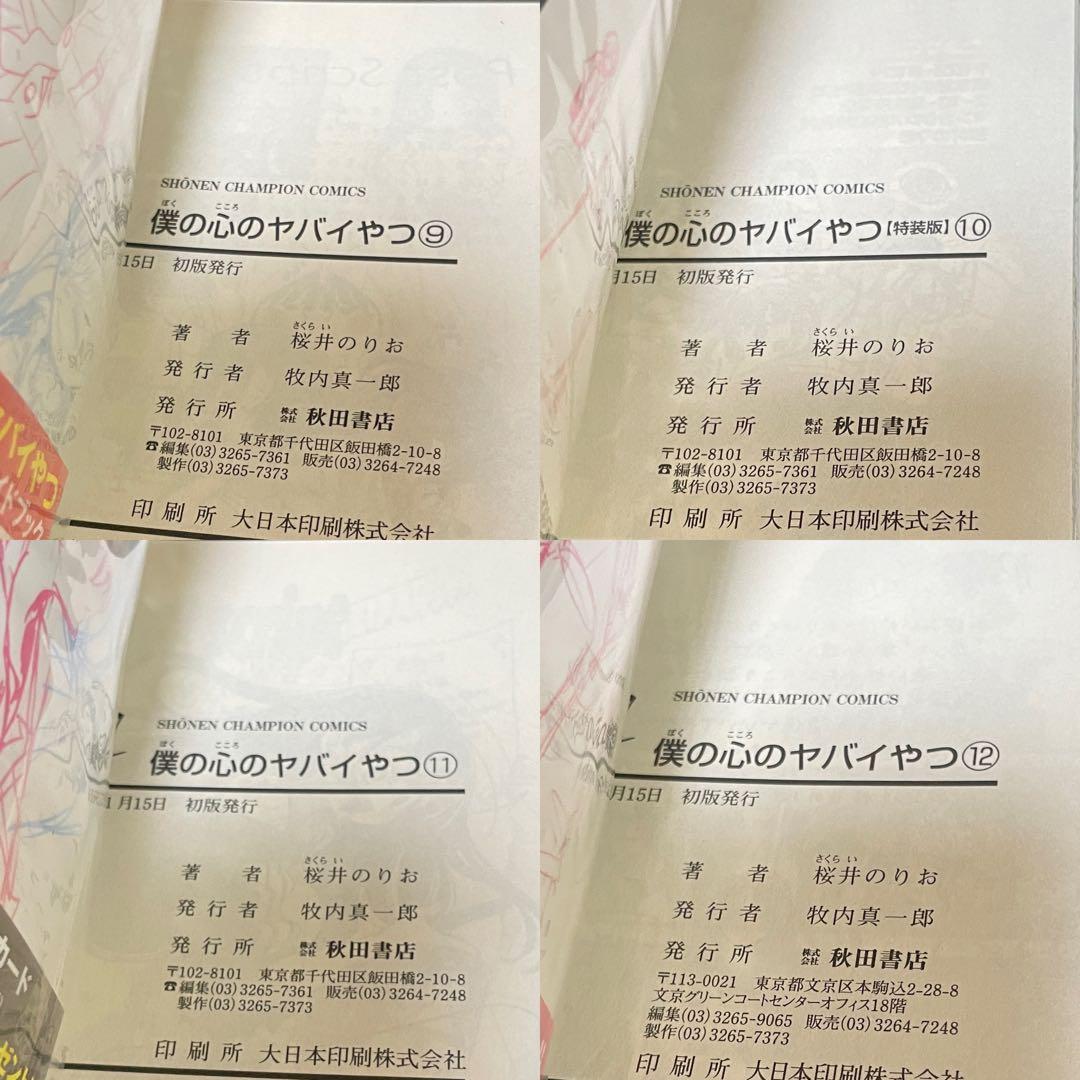 SHŌNEN CHAMPION COMICS
ぼく こころ
僕の心のヤバイやつ⑨
月15日 初版発行
さくら い
著 者 桜井のりお
発行者 牧内真一郎
発行所 株式会社 秋田書店
〒102-8101 東京都千代田区飯田橋2-10-8
☎編集(03)3265-7361 販売(03)3264-7248
製作(03)3265-7373
印刷所 大日本印刷株式会社
バイやつ
ドブック
SHŌNEN CHAMPION COMICS
ぼく こころ
僕の心のヤバイやつ【特装版】⑩
月15日 初版発行
さくら い
著 者 桜井のりお
発行者 牧内真一郎
発行所 株式会社 秋田書店
〒102-8101 東京都千代田区飯田橋2-10-8
☎編集(03)3265-7361 販売(03)3264-7248
製作(03)3265-7373
印刷所 大日本印刷株式会社
SHŌNEN CHAMPION COMICS
ぼく こころ
僕の心のヤバイやつ⑪
1月15日 初版発行
さくら い
著 者 桜井のりお
発行者 牧内真一郎
発行所 株式会社 秋田書店
〒102-8101 東京都千代田区飯田橋2-10-8
☎編集(03)3265-7361 販売(03)3264-7248
製作(03)3265-7373
印刷所 大日本印刷株式会社
カード
SHŌNEN CHAMPION COMICS
ぼく こころ
僕の心のヤバイやつ⑫
月15日 初版発行
さくら い
著 者 桜井のりお
発行者 牧内真一郎
発行所 株式会社 秋田書店
〒113-0021 東京都文京区本駒込2-28-8
文京グリーンコートセンターオフィス18階
編集(03)3265-9065 販売(03)3264-7248
製作(03)3265-7373
印刷所 大日本印刷株式会社